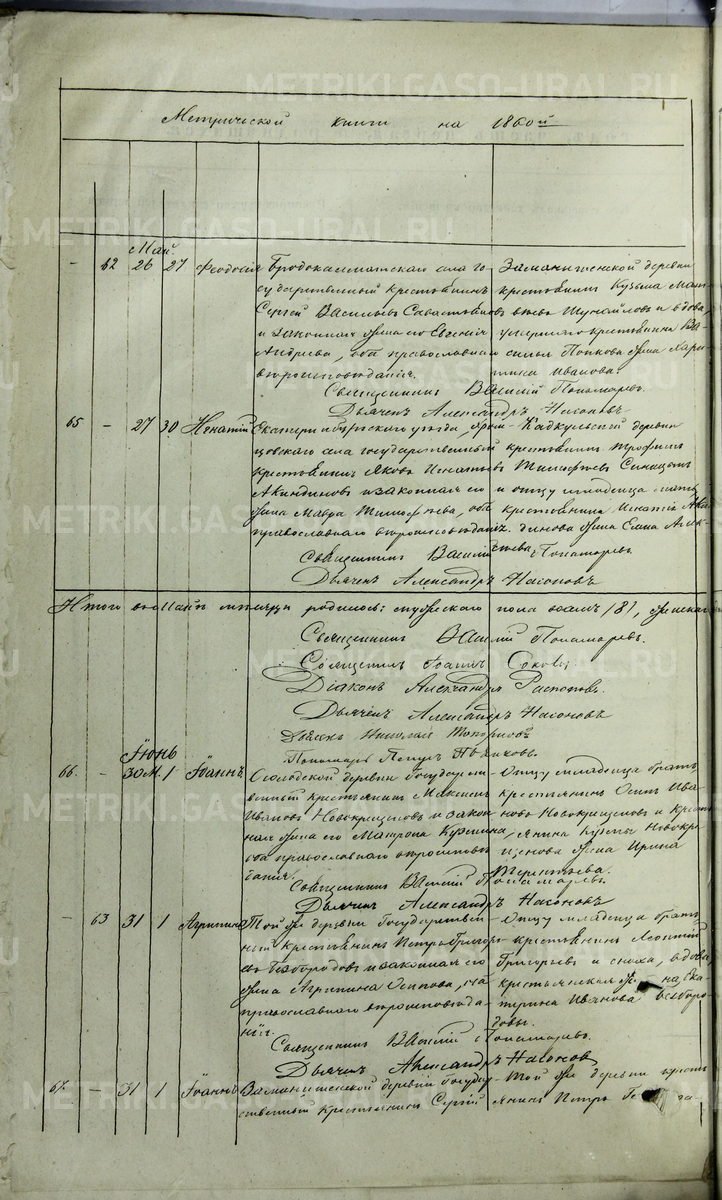 Метрической книги на 1860й
Май.
– 62 26 27 Феодосія
Бродокалматскаго села го-
сударственный крестьянинъ
Сергій Васильевъ Савастьяновъ
и законная жена его Евгенія
Андреева, оба православнаго
вѣроисповѣданія.
Заманихинской деревни
крестьянинъ Кузьма Мат
вѣевъ и вдова,
умершаго крестьянина Ва-
силья Попкова жена Хари-
тина Иванова.
Священникъ Василій Пономаревъ.
Дьячекъ Александръ Насоновъ
65 – 27 30 Игнатій
Екатеринбургскаго уѣзда,
цовскаго села государственный
крестьянинъ Яковъ Игнатьевъ
Акиндиновъ и законная его
жена Мавра Тимофѣева, оба
православнаго вѣроисповѣдан.
Кадкульской деревни
крестьянинъ Трофимъ
Тимофѣевъ Синицынъ
и отцу младенца мать,
крестьянина Игнатія Аки
динова жена Елена Алек-
сѣева.
Священникъ Василій Пономаревъ
Дьячекъ Александръ Насоновъ
Итого въ Маѣ мѣсяцѣ родилось: мужескаго пола восемь /8/, женскаго
Священникъ Василій Пономаревъ.
Священникъ Іоаннъ
Діаконъ Александръ
Дьячекъ Александръ Насоновъ
Дьячекъ Николай Топорковъ
Пономарь Петръ
Іюнь
66. – 30 М. 1 Іоаннъ
деревни государст-
венный крестьянинъ Максимъ
Ивановъ Новокрещеновъ и закон-
ная жена его Матрона Кузмина,
оба православнаго вѣроисповѣ-
данія.
Отцу младенца братъ,
крестьянинъ Осипъ Ива-
новъ Новокрещеновъ и крест-
янина Кузмы Новокре-
щенова жена Ирина
Терентьева.
Священникъ Василій Пономаревъ.
Дьячекъ Александръ Насоновъ
– 63 31 1 Агрипина
Той же деревни государствен-
ный крестьянинъ Петръ Григорь-
евъ Безбородовъ и законная его
жена Агрипина Осипова, оба
православнаго вѣроисповѣда-
нія.
Отцу младенца братъ,
крестьянинъ Леонтій
Григорьевъ и сноха, вдова
крестьянская жена Ека-
терина Иванова Безборо-
дова.
Священникъ Василій Пономаревъ.
Дьячекъ Александръ Насоновъ
67. – 31 1 Іоаннъ
Заманихинской деревни государ-
ственный крестьянинъ Сергій
Той же деревни кресть
янинъ Петръ
METRIKI.GASO-URAL.RU